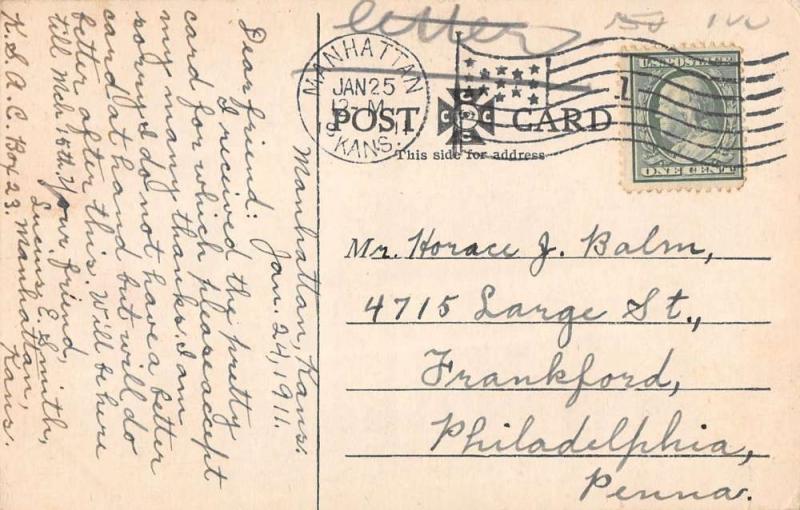 letter
MANHATTAN
JAN 25
12 M
KANS.
U.S. POSTAGE
ONE CENT
POST CARD
This side for address
Manhattan, Kans.
Jan. 24, 1911.
Dear friend:
I received the pretty
card for which please accept
my many thanks. I am
sorry I do not have a better
card at hand but will do
better after this. Will be here
till Mch 15th. Your friend,
Lucius E. Smith,
K. S. A. C. Box 23. Manhattan,
Kans.
Mr. Horace J. Balm,
4715 Large St.,
Frankford,
Philadelphia,
Penna.